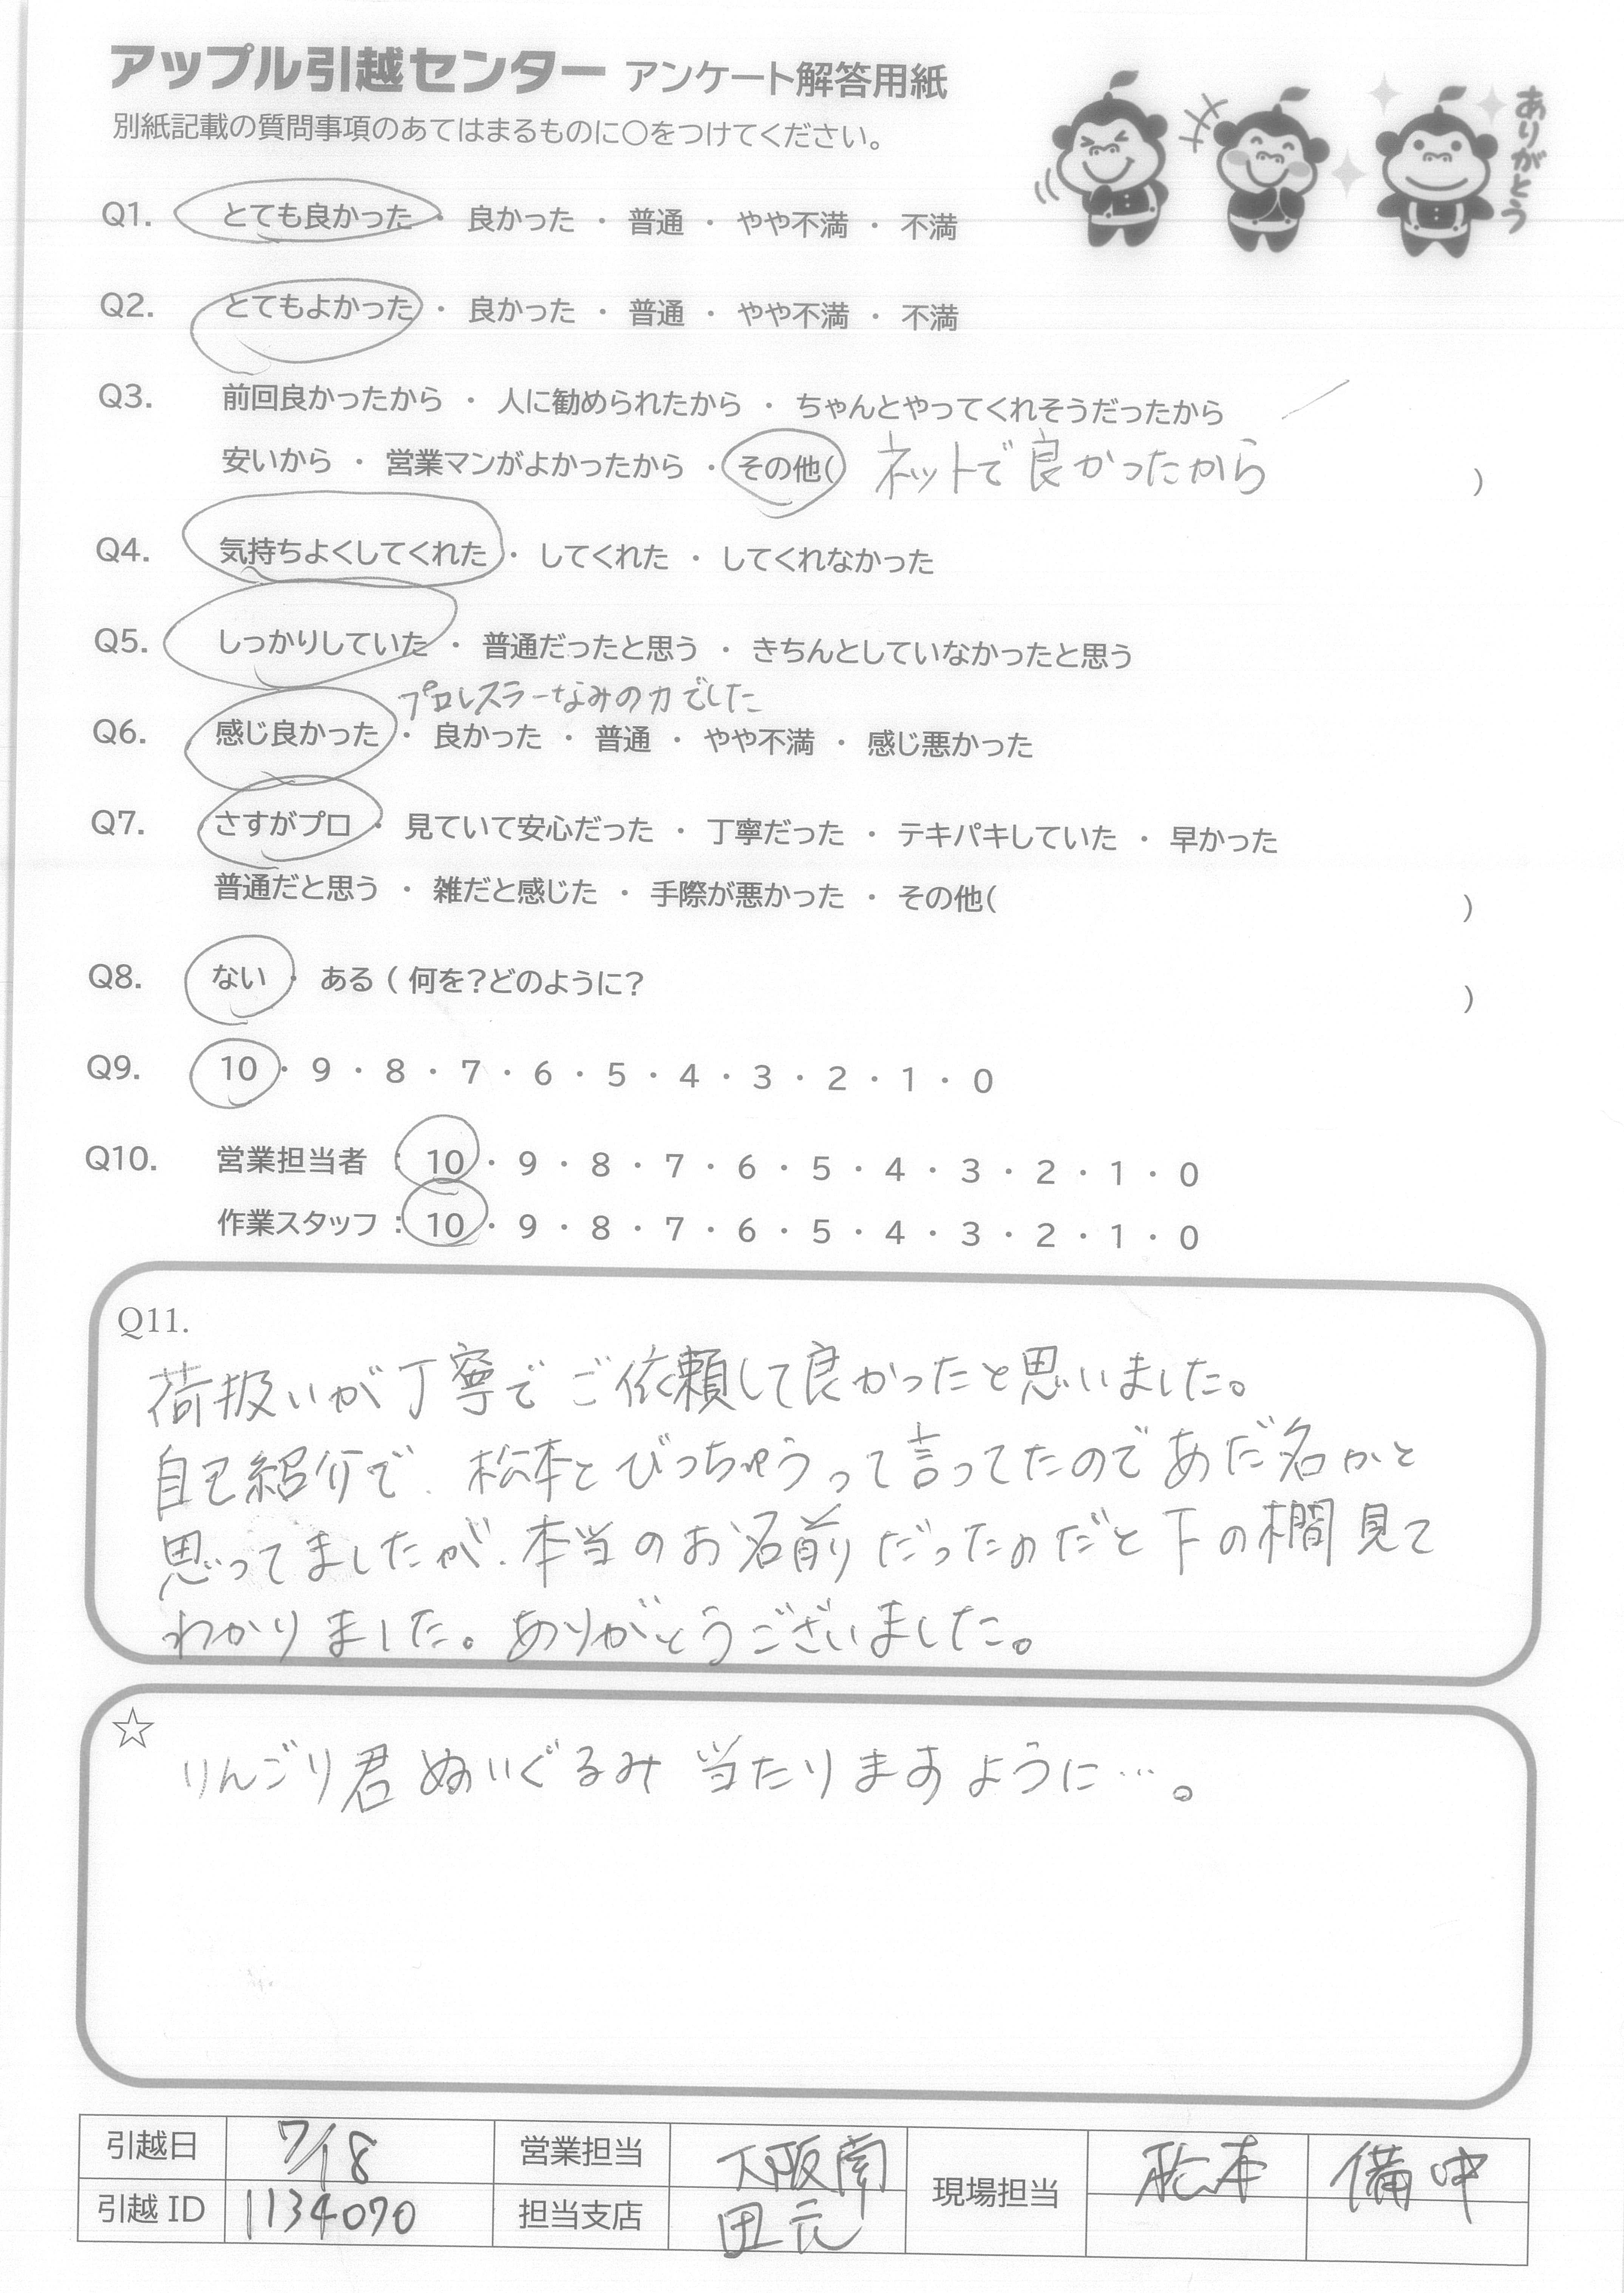 アップル引越センター アンケート解答用紙
別紙記載の質問事項のあてはまるものに○をつけてください。
ありがとう
Q1. とても良かった ・ 良かった ・ 普通 ・ やや不満 ・ 不満
Q2. とてもよかった ・ 良かった ・ 普通 ・ やや不満 ・ 不満
Q3. 前回良かったから ・ 人に勧められたから ・ ちゃんとやってくれそうだったから
安いから ・ 営業マンがよかったから ・ その他( ネットで良かったから )
Q4. 気持ちよくしてくれた ・ してくれた ・ してくれなかった
Q5. しっかりしていた ・ 普通だったと思う ・ きちんとしていなかったと思う
プロレスラーなみの力でした
Q6. 感じ良かった ・ 良かった ・ 普通 ・ やや不満 ・ 感じ悪かった
Q7. さすがプロ ・ 見ていて安心だった ・ 丁寧だった ・ テキパキしていた ・ 早かった
普通だと思う ・ 雑だと感じた ・ 手際が悪かった ・ その他( )
Q8. ない ・ ある ( 何を?どのように? )
Q9. 10 ・ 9 ・ 8 ・ 7 ・ 6 ・ 5 ・ 4 ・ 3 ・ 2 ・ 1 ・ 0
Q10. 営業担当者 : 10 ・ 9 ・ 8 ・ 7 ・ 6 ・ 5 ・ 4 ・ 3 ・ 2 ・ 1 ・ 0
作業スタッフ : 10 ・ 9 ・ 8 ・ 7 ・ 6 ・ 5 ・ 4 ・ 3 ・ 2 ・ 1 ・ 0
Q11.
荷扱いが丁寧でご依頼して良かったと思いました。
自己紹介で、松本とびっちゅうって言ってたのであだ名かと
思ってましたが、本当のお名前だったのだと下の欄見て
わかりました。ありがとうございました。
☆
りんごり君ぬいぐるみ 当たりますように…。
引越日 7/18 営業担当 大阪南 現場担当 松本 備中
引越 ID 1134070 担当支店 田元